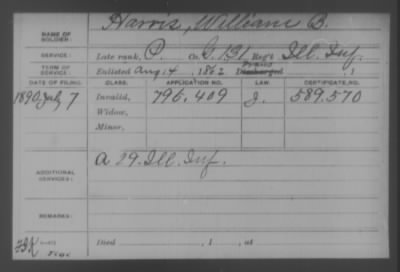 NAME OF SOLDIER: Harris, William B.
SERVICE: Late rank, P. Co. G, 131 Reg't Ill. Inf.
TERM OF SERVICE: Enlisted Aug 14, 1862 Discharged , 1
DATE OF FILING. CLASS. APPLICATION NO. LAW. CERTIFICATE NO.
1890 July 7 Invalid, 796.409 J. 589.570
Widow,
Minor,
ADDITIONAL SERVICES: A 29. Ill. Inf.
REMARKS:
Died , 1 , at